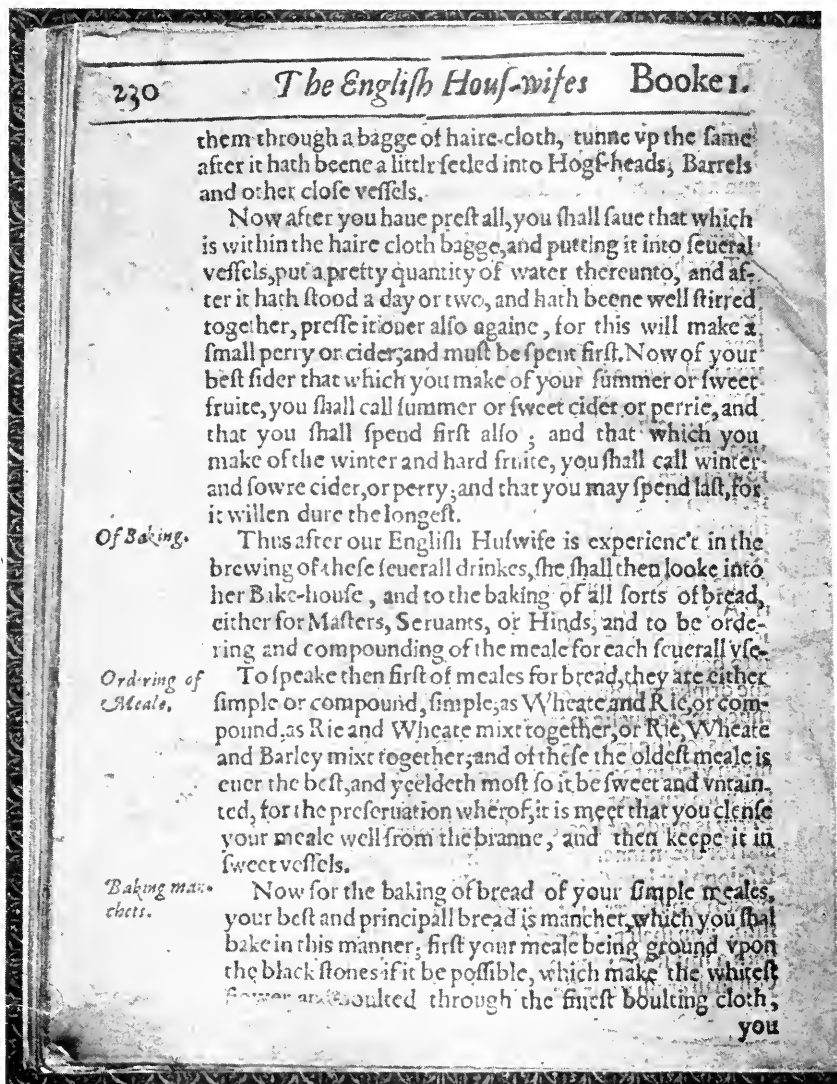 230 The Engliſh Houſ-wifes Booke 1.
them through a bagge of haire-cloth, tunne vp the ſame
after it hath beene a littlr ſetled into Hogſ-heads, Barrels
and other cloſe veſſels.
Now after you haue preſt all, you ſhall ſaue that which
is within the haire cloth bagge, and putting it into ſeueral
veſſels, put a pretty quantity of water thereunto, and af-
ter it hath ſtood a day or two, and hath beene well ſtirred
together, preſſe it ouer alſo againe, for this will make a
ſmall perry or cider, and muſt be ſpent firſt. Now of your
beſt ſider that which you make of your ſummer or ſweet
fruite, you ſhall call ſummer or ſweet cider or perrie, and
that you ſhall ſpend firſt alſo; and that which you
make of the winter and hard fruite, you ſhall call winter
and ſowre cider, or perry; and that you may ſpend laſt, for
it willen dure the longeſt.
Of Baking.
Thus after our Engliſh Huſwife is experienc't in the
brewing of theſe ſeuerall drinkes, ſhe ſhall then looke into
her Bake-houſe, and to the baking of all ſorts of bread,
either for Maſters, Seruants, or Hinds, and to be orde-
ring and compounding of the meale for each ſeuerall vſe.
Ordring of
Meale.
To ſpeake then firſt of meales for bread, they are either
ſimple or compound, ſimple, as Wheate and Rie, or com-
pound, as Rie and Wheate mixt together, or Rie, Wheate
and Barley mixt together; and of theſe the oldeſt meale is
euer the beſt, and yeeldeth moſt ſo it be ſweet and vntain-
ted, for the preſeruation wherof, it is meet that you clenſe
your meale well from the branne, and then keepe it in
ſweet veſſels.
Baking man-
chets.
Now for the baking of bread of your ſimple meales,
your beſt and principall bread is manchet, which you ſhal
bake in this manner; firſt your meale being ground vpon
the black ſtones if it be poſſible, which make the whiteſt
boulted through the fineſt boulting cloth,
you